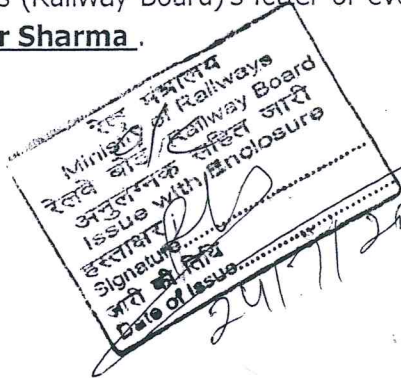 (Railway Board)'s letter of
r Sharma .
रेल मंत्रालय
Ministry of Railways
रेलवे बोर्ड/Railway Board
अनुलग्नक सहित जारी
Issue with Enclosure
हस्ताक्षर
Signature....................
जारी की तिथि
Date of Issue....................
24/7/20